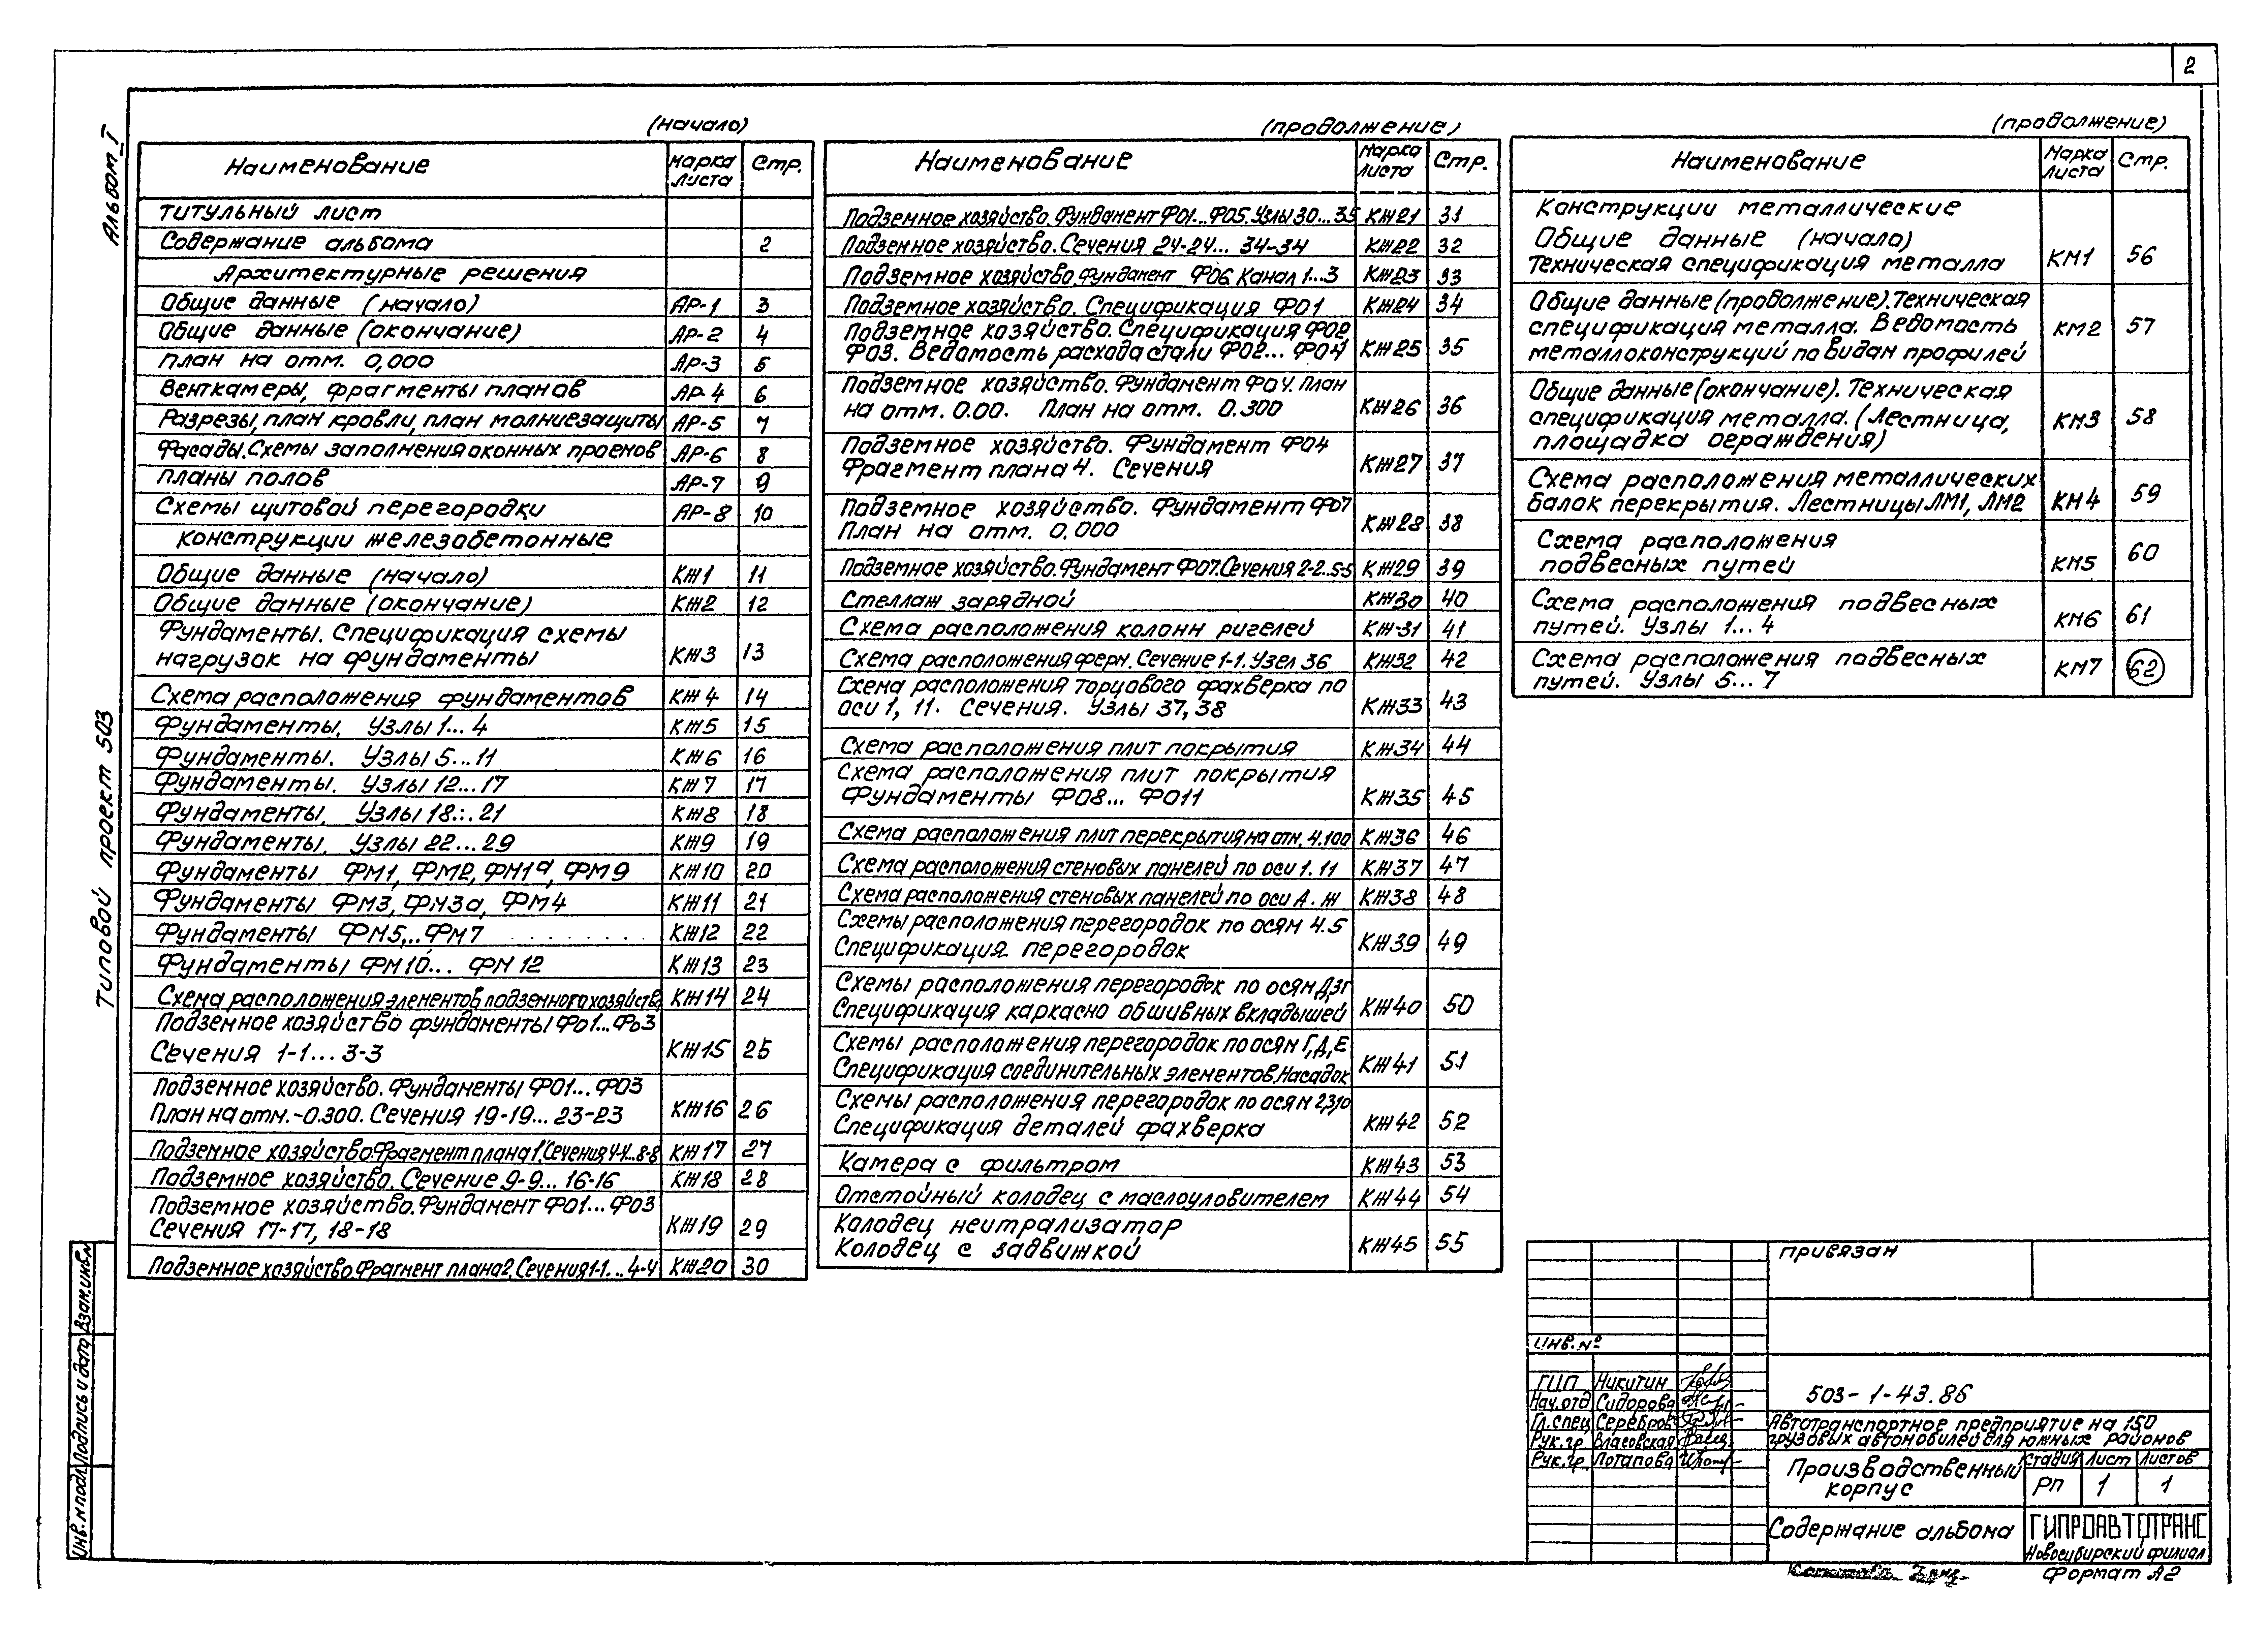 2
Альбом I
Типовой проект 503
(начало)
Наименование Марка листа Стр.
Титульный лист
Содержание альбома 2
Архитектурные решения
Общие данные (начало) АР-1 3
Общие данные (окончание) АР-2 4
План на отм. 0,000 АР-3 5
Венткамеры, фрагменты планов АР-4 6
Разрезы, план кровли, план молниезащиты АР-5 7
Фасады. Схемы заполнения оконных проемов АР-6 8
Планы полов АР-7 9
Схемы щитовой перегородки АР-8 10
Конструкции железобетонные
Общие данные (начало) КЖ1 11
Общие данные (окончание) КЖ2 12
Фундаменты. Спецификация схемы
нагрузок на фундаменты КЖ3 13
Схема расположения фундаментов КЖ4 14
Фундаменты. Узлы 1...4 КЖ5 15
Фундаменты. Узлы 5...11 КЖ6 16
Фундаменты. Узлы 12...17 КЖ7 17
Фундаменты. Узлы 18...21 КЖ8 18
Фундаменты. Узлы 22...29 КЖ9 19
Фундаменты ФМ1, ФМ2, ФМ1а, ФМ9 КЖ10 20
Фундаменты ФМ3, ФМ3а, ФМ4 КЖ11 21
Фундаменты ФМ5...ФМ7 КЖ12 22
Фундаменты ФМ10... ФМ12 КЖ13 23
Схема расположения элементов подземного хозяйства КЖ14 24
Подземное хозяйство фундаменты Фо1...Фо3
Сечения 1-1...3-3 КЖ15 25
Подземное хозяйство. Фундаменты Ф01...Ф03
План на отм.-0.300. Сечения 19-19...23-23 КЖ16 26
Подземное хозяйство. Фрагмент плана 1. Сечения 4-4...8-8 КЖ17 27
Подземное хозяйство. Сечение 9-9... 16-16 КЖ18 28
Подземное хозяйство. Фундамент Ф01...Ф03
Сечения 17-17, 18-18 КЖ19 29
Подземное хозяйство. Фрагмент плана 2. Сечения 1-1... 4-4 КЖ20 30
(продолжение)
Наименование Марка листа Стр.
Подземное хозяйство. Фундамент Ф01...Ф05. Узлы 30...35 КЖ21 31
Подземное хозяйство. Сечения 24-24... 34-34 КЖ22 32
Подземное хозяйство. Фундамент Ф06 Канал 1...3 КЖ23 33
Подземное хозяйство. Спецификация Ф01 КЖ24 34
Подземное хозяйство. Спецификация Ф02
Ф03. Ведомость расхода стали Ф02... Ф04 КЖ25 35
Подземное хозяйство. Фундамент Ф04. План
на отм. 0.00. План на отм. 0.300 КЖ26 36
Подземное хозяйство. Фундамент Ф04
Фрагмент плана 4. Сечения КЖ27 37
Подземное хозяйство. Фундамент Ф07
План на отм. 0,000 КЖ28 38
Подземное хозяйство. Фундамент Ф07. Сечения 2-2..5-5 КЖ29 39
Стеллаж зарядной КЖ30 40
Схема расположения колонн ригелей КЖ31 41
Схема расположения ферм. Сечение 1-1. Узел 36 КЖ32 42
Схема расположения торцового фахверка по
оси 1, 11. Сечения. Узлы 37, 38 КЖ33 43
Схема расположения плит покрытия КЖ34 44
Схема расположения плит покрытия
Фундаменты Ф08... Ф011 КЖ35 45
Схема расположения плит перекрытия на отм. 4.100 КЖ36 46
Схема расположения стеновых панелей по оси 1. 11 КЖ37 47
Схема расположения стеновых панелей по оси А. Ж КЖ38 48
Схемы расположения перегородок по осям 4.5
Спецификация перегородок КЖ39 49
Схемы расположения перегородок по осям
Спецификация каркасно обшивных вкладышей КЖ40 50
Схемы расположения перегородок по осям Г,Д,Е
Спецификация соединительных элементов. Насадок КЖ41 51
Схемы расположения перегородок по осям 2,3,10
Спецификация деталей фахверка КЖ42 52
Камера с фильтром КЖ43 53
Отстойный колодец с маслоуловителем КЖ44 54
Колодец неитрализатор
Колодец с задвижкой КЖ45 55
(продолжение)
Наименование Марка листа Стр.
Конструкции металлические
Общие данные (начало)
Техническая спецификация металла КМ1 56
Общие данные (продолжение). Техническая
спецификация металла. Ведомость
металлоконструкций по видам профилей КМ2 57
Общие данные (окончание). Техническая
спецификация металла. (Лестница,
площадка ограждения) КМ3 58
Схема расположения металлических
балок перекрытия. Лестницы ЛМ1, ЛМ2 КМ4 59
Схема расположения
подвесных путей КМ5 60
Схема расположения подвесных
путей. Узлы 1...4 КМ6 61
Схема расположения подвесных
путей. Узлы 5...7 КМ7 62
Привязан
Инв.№
ГИП Никитин
Нач.отд Сидорова
Гл.спец Серебров
Рук.гр. Власовская
Рук.гр. Потапова
503-1-43.86
Автотранспортное предприятие на 150
грузовых автомобилей для южных районов
Производственный корпус
Стадия Лист Листов
РП 1 1
Содержание альбома
ГИПРОАВТОТРАНС
Новосибирский филиал
Формат А2
Инв.№ подл. Подпись и дата Взам.инв.№